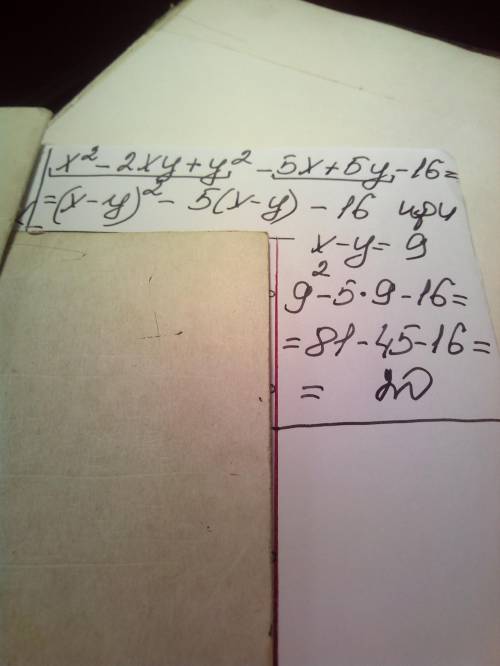 x² - 2xy + y² - 5x + 5y - 16 =
= (x-y)² - 5(x-y) - 16 при
x - y = 9
9² - 5·9 - 16 =
= 81 - 45 - 16 =
= 20